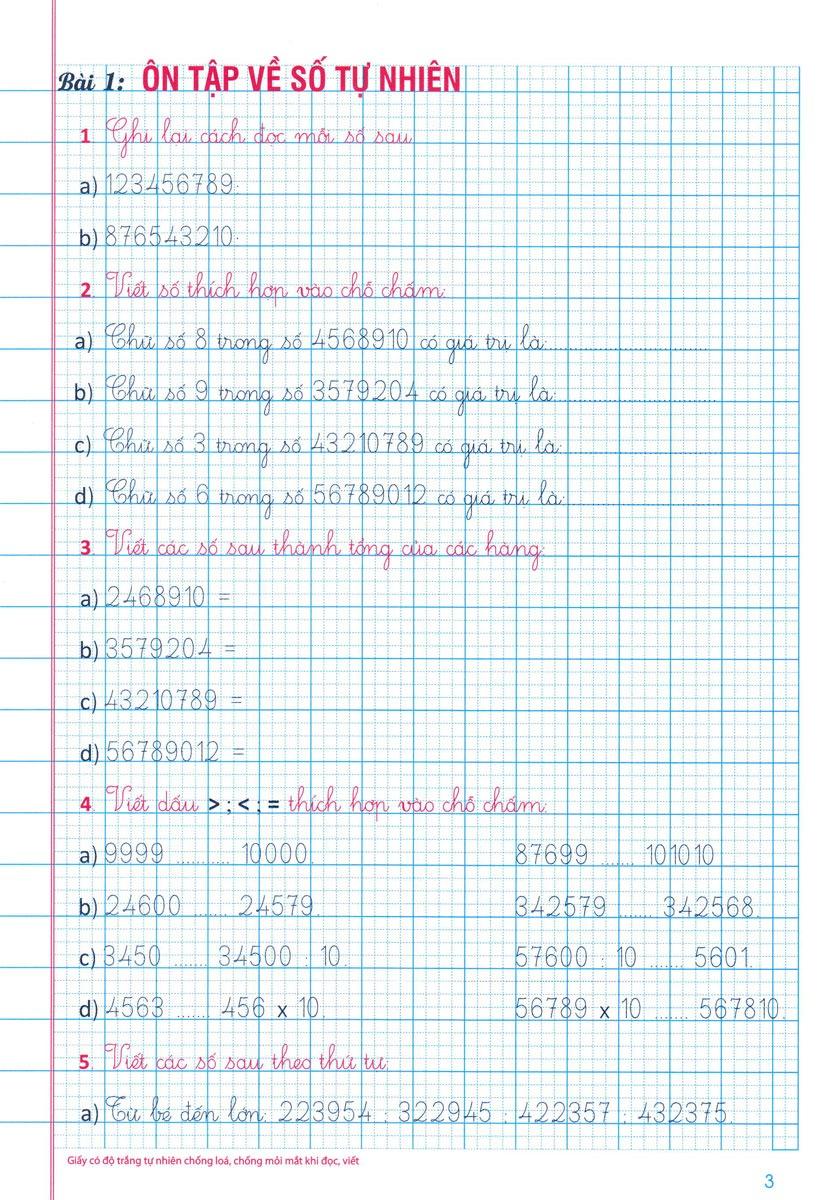 Bài 1: ÔN TẬP VỀ SỐ TỰ NHIÊN
1. Ghi lại cách đọc mỗi số sau:
a) 123456789:
b) 876543210:
2. Viết số thích hợp vào chỗ chấm:
a) Chữ số 8 trong số 4568910 có giá trị là:..............................
b) Chữ số 9 trong số 3579204 có giá trị là:..............................
c) Chữ số 3 trong số 43210789 có giá trị là:..............................
d) Chữ số 6 trong số 56789012 có giá trị là:..............................
3. Viết các số sau thành tổng của các hàng:
a) 2468910 =
b) 3579204 =
c) 43210789 =
d) 56789012 =
4. Viết dấu > ; < ; = thích hợp vào chỗ chấm:
a) 9999 .......... 10000. 87699 ....... 101010
b) 24600 ....... 24579. 342579 ....... 342568.
c) 3450 ....... 34500 : 10. 57600 : 10 ....... 5601.
d) 4563 ....... 456 x 10. 56789 x 10 ....... 567810.
5. Viết các số sau theo thứ tự:
a) Từ bé đến lớn: 223954 ; 322945 ; 422357 ; 432375.
Giấy có độ trắng tự nhiên chống loá, chống mỏi mắt khi đọc, viết
3